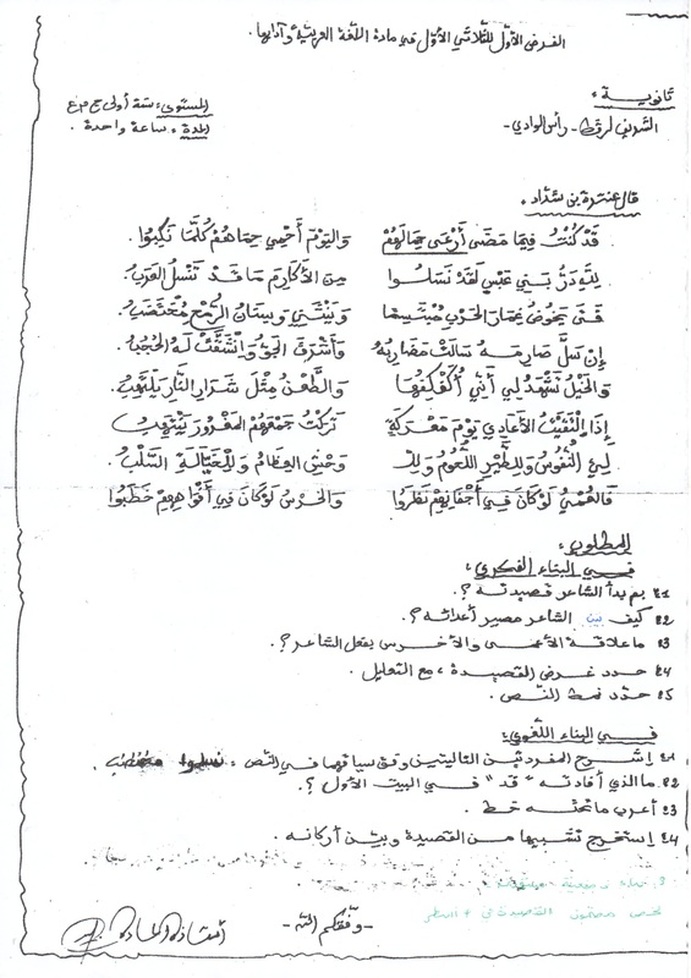 الفرض الأوّل للثّلاثي الأوّل في مادة اللّغة العربيّة وآدابها.
ثانويــة :
المستوى : سنة أولى ج م ع
الشريف لرقط - رأس الوادي -
المدة : ساعة واحدة .
قال عنترة بن شدّاد :
قَدْ كُنْتُ فِيمَا مَضَى أَرْعَى جِمَالَهُمْ وَاليَوْمَ أَحْمِي حِمَاهُمْ كُلَّمَا نُكِبُوا .
لِلَّهِ دَرُّ بَنِي عَبْسٍ لَقَدْ نَسَلُــوا مِنَ الأَكَارِمِ مَا قَــدْ تَنْسُلُ العَرَبُ .
فَتًى يَخُوضُ غِمَارَ الحَرْبِ مُبْتَسِمًا وَيَنْثَنِي وَسِنَانُ الرُّمْحِ مُخْتَضَبُ .
إِنْ سَلَّ صَارِمَــهُ سَالَتْ مَضَارِبُهُ وَأَشْرَقَ الجَوُّ وَانْشَقَّتْ لَهُ الحُجُبُ .
وَالخَيْلُ تَشْهَدُ لِي أَنِّي أُكَفْكِفُهَا وَالطَّعْنُ مِثْلَ شَرَارِ النَّارِ يَلْتَهِبُ .
إِذَا التَقَيْتُ الأَعَادِي يَوْمَ مَعْرَكَةٍ تَرَكْتُ جَمْعَهُمُ المَغْرُورَ يُنْتَهَبُ
لِيَ النُّفُوسُ وَلِلطَّيْرِ اللُّحُومُ وَلِلْـ وَحْشِ العِظَامُ وَلِلْخَيَّالَةِ السَّلَبُ .
فَالعُمْيُ لَوْ كَانَ فِــي أَجْفَانِهِمْ نَظَرُوا وَالخُرْسُ لَوْ كَانَ فِي أَفْوَاهِهِمْ خَطَبُوا
المطلوب :
فــي البناء الفكري :
1ع بم بدأ الشاعر قصيدتــه ؟.
2ع كيف بين الشاعر مصير أعدائه ؟.
3ع ما علاقــة الأعمــى والأخــرس بفعل الشاعر ؟.
4ع حــدد غــرض القصيــدة ، مع التعليل .
5ع حدّد نمط النّــص .
فــي البناء اللّغوي :
1ع إشــرح المفردتين التاليتين وفق سياقهما في النّص : نسلوا مختضب .
2ع ما الذي أفادتــه " قد " فــي البيت الأول ؟.
3ع أعرب ما تحتــه خــط .
4ع إستخرج تشبيها مــن القصيدة وبيّــن أركانــه .
لخص مضمون القصيدة في
- وفّقكم اللّه -
أستاذة المادة